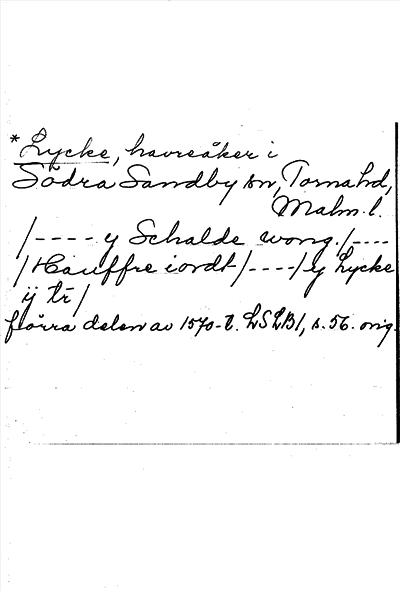 * Lycke, havreåker i
Södra Sandby sn, Torna hd,
Malm. l.
/---- y Schalde wong /----
/Hauffre iordt/----/ y Lycke
ÿ tr/
förra delen av 1570-t. LSLB1, s. 56. orig.